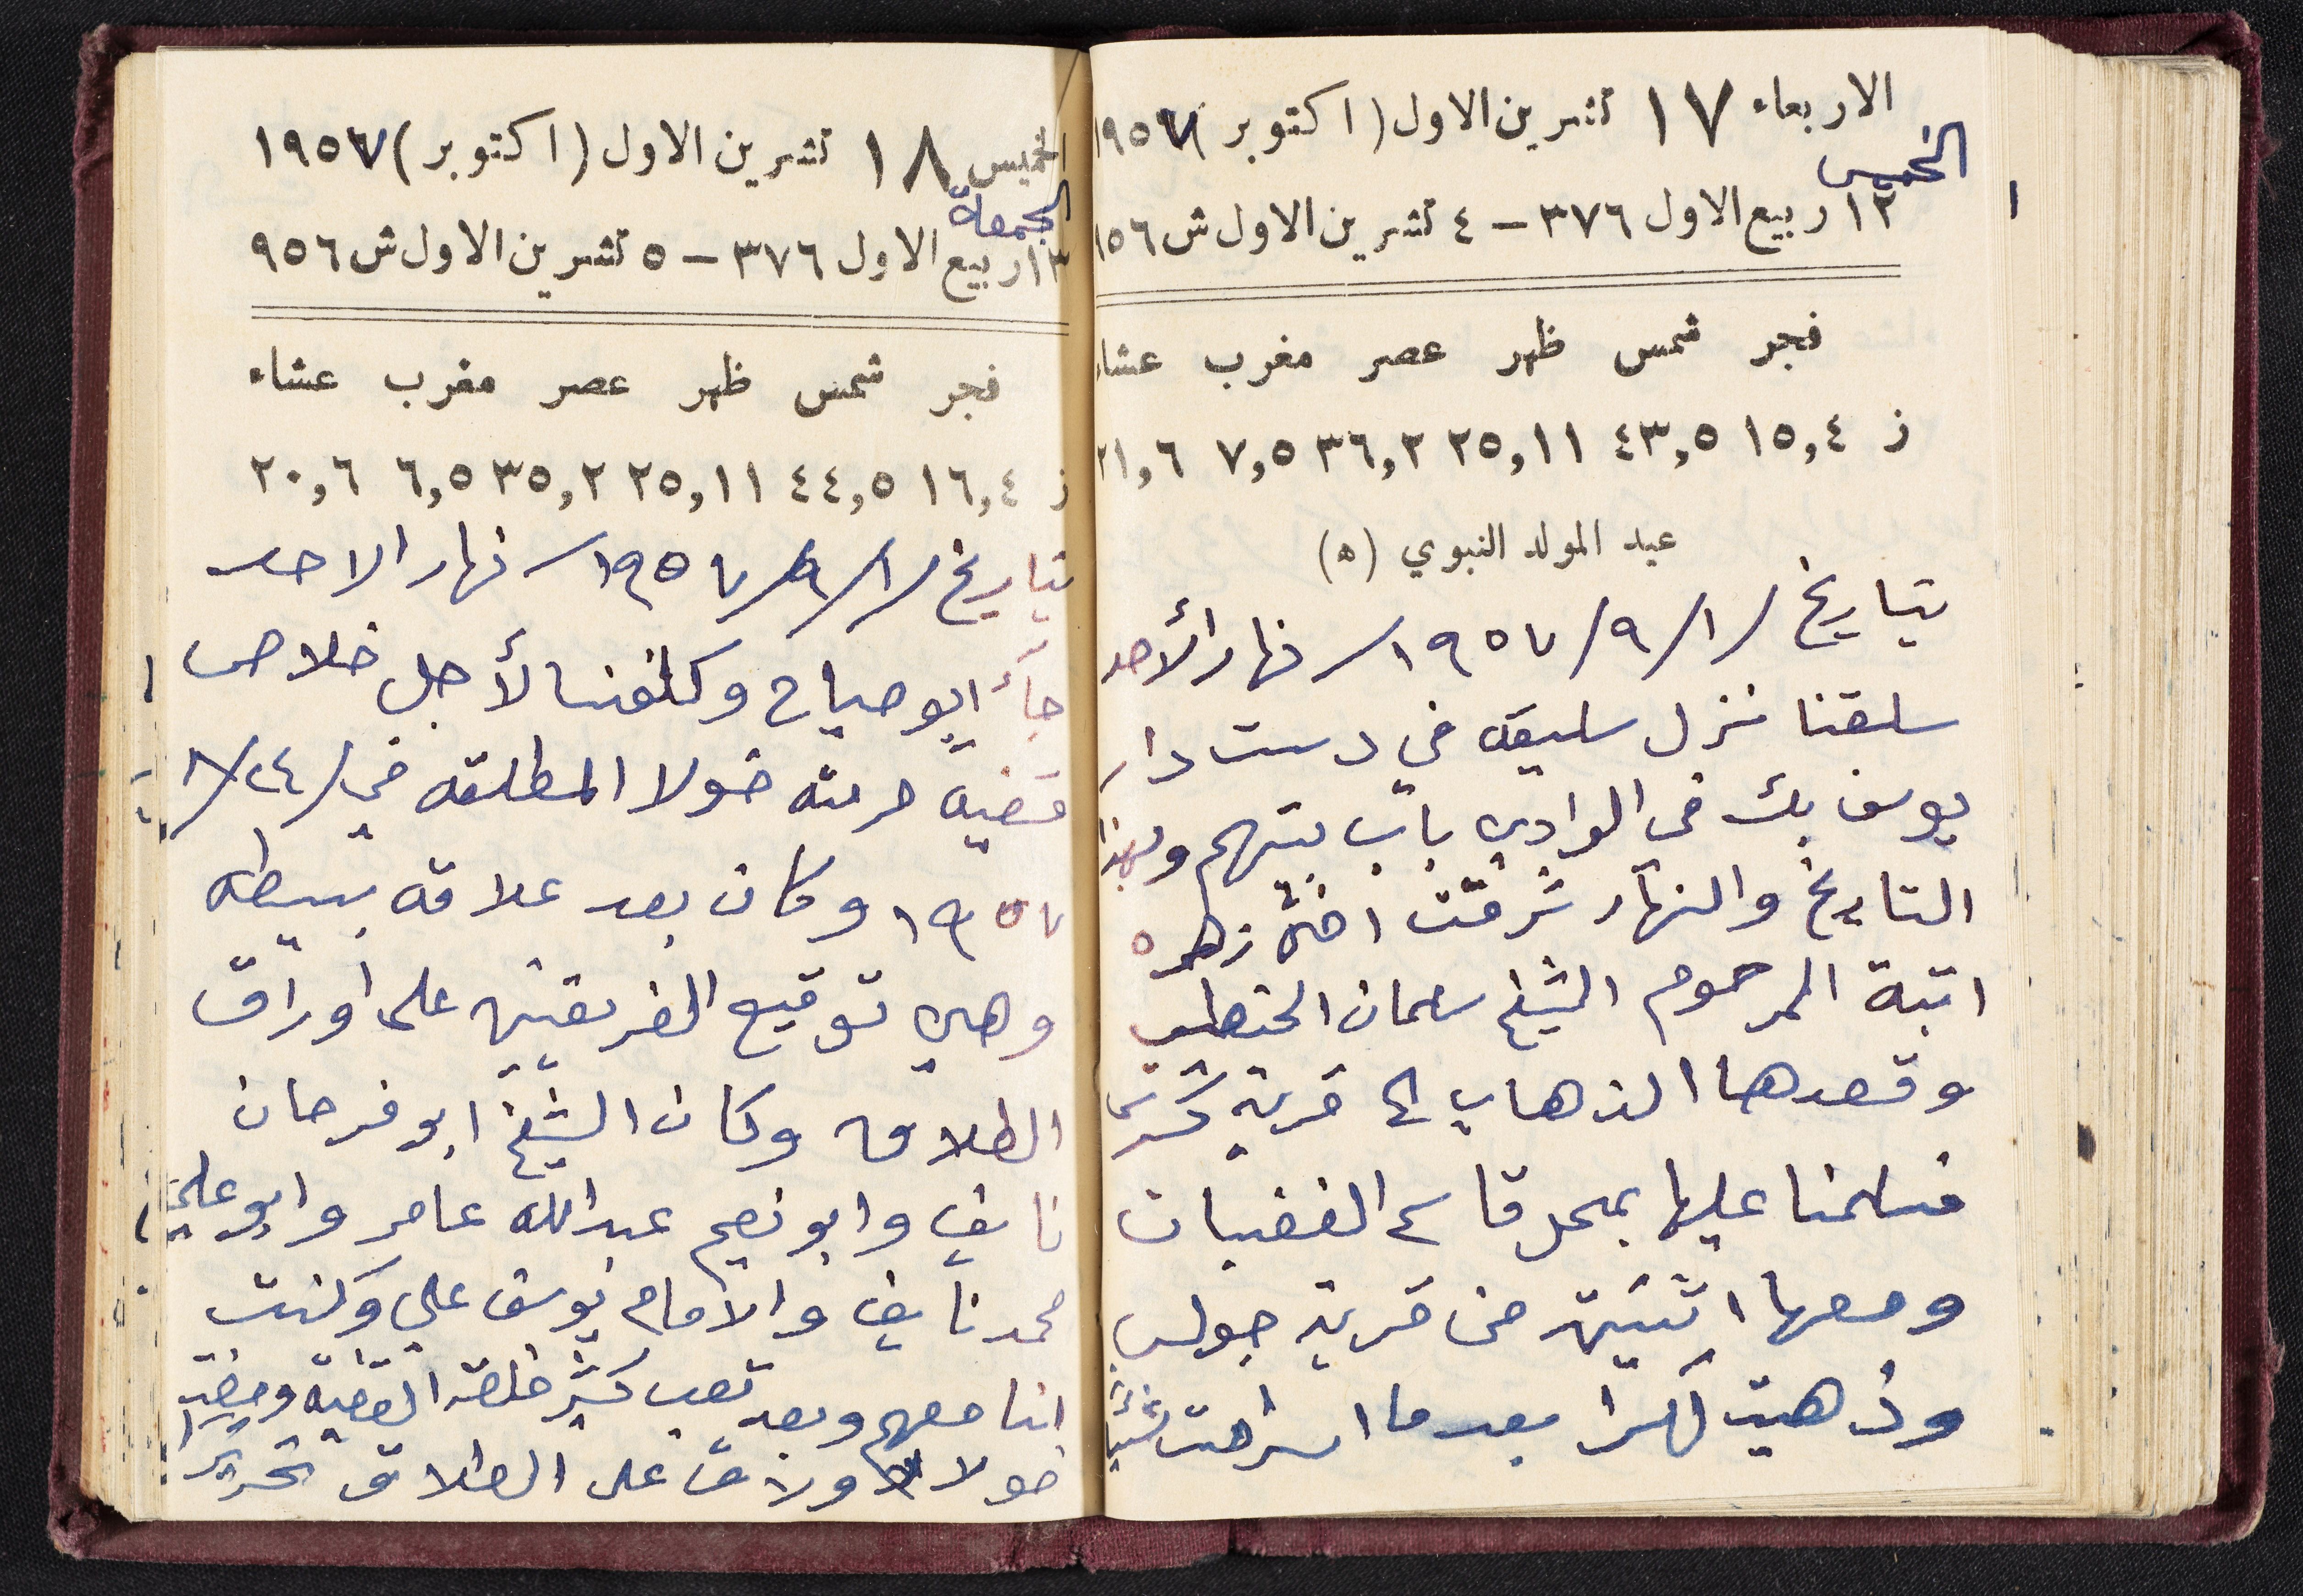 الاربعاء ١٧ تشرين الاول (اكتوبر) ١٩٥٧
الخميس
١٢ ربيع الاول ٣٧٦ – ٤ تشرين الاول ش ٩٥٦
فجر شمس ظهر عصر مغرب عشاء
ز ١٥,٤ ٤٣,٥ ٢٥,١١ ٣٦,٢ ٧,٥ ٢١,٦
عيد المولد النبوي (٥)
بتاريخ /١/٩/١٩٥٧ نهار الأحد
سلقنا نزل سليقه في دست دار
يوسف بك في الوادي باب بيتهم وبهذا
التاريخ والنهار شرفت اختي زهره
ابنة المرحوم الشيخ سلمان الخطيب
وقصدها الذهاب الى قرية كسرى
فسلمنا عليها بمحل قاسم الغضبان
ومعها اثنين من قرية جولس
وذهبت لكسرا بعدما استراحت شيئاً
الخميس ١٨ تشرين الاول (اكتوبر) ١٩٥٧
الجمعة
١٣ ربيع الاول ٣٧٦ – ٥ تشرين الاول ش ٩٥٦
فجر شمس ظهر عصر مغرب عشاء
ز ١٦,٤ ٤٤,٥ ٢٥,١١ ٣٥,٢ ٦,٥ ٢٠,٦
بتاريخ /١/٩/١٩٥٧ نهار الاحد
جآء ابو صياح وكلفنا لأجل خلاص
قضية حرمته خولا المطلقه في /٢٤/٨
١٩٥٧ وكان بعد علاقه بسيطه
وهي توقيع الفريقين على اوراق
الطلاق وكان الشيخ ابو فرحان
نايف وابو نعيم عبدالله عامر وابو علي
محمد نايف والامام يوسف علي وكنت
انا معهم وبعد تعب كثير خلصت القضية ومضت
خولا اوراق على الطلاق تحريرا